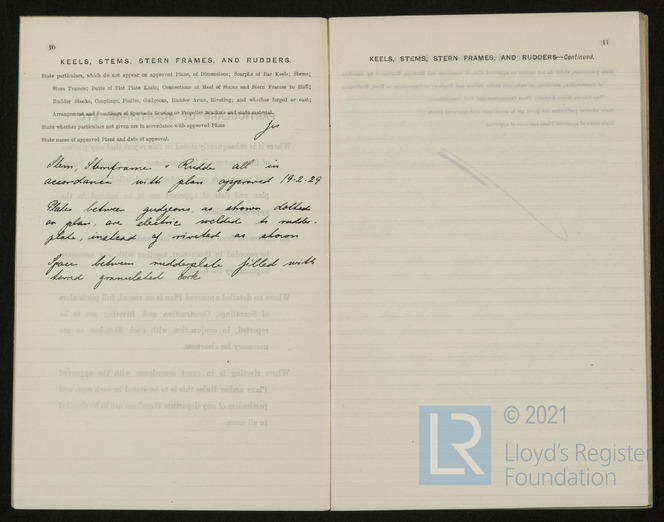 10
KEELS, STEMS, STERN FRAMES, AND RUDDERS.
State particulars, which do not appear on approved Plans, of Dimensions; Scarphs of Bar Keels; Stems;
Stern Frames; Butts of Flat Plate Keels; Connections at Heel of Stems and Stern Frames to Hull;
Rudder Stocks, Couplings, Pintles, Gudgeons, Rudder Arms, Riveting; and whether forged or cast;
Arrangement and Scantlings of Spectacle Bossing or Propeller Brackets and state material.
State whether particulars not given are in accordance with approved Plans Yes
State name of approved Plans and date of approval.
Stem, Sternframe & Rudder all in
accordance with plan approved 19-2-29
Plates between gudgeons, as shown dotted
on plan, are electric welded to rudder-
plate, instead of riveted as shown
Space between rudderplate filled with
tarred granulated cork
11
KEELS, STEMS, STERN FRAMES, AND RUDDERS—Continued.
LR
© 2021
Lloyd's Register
Foundation